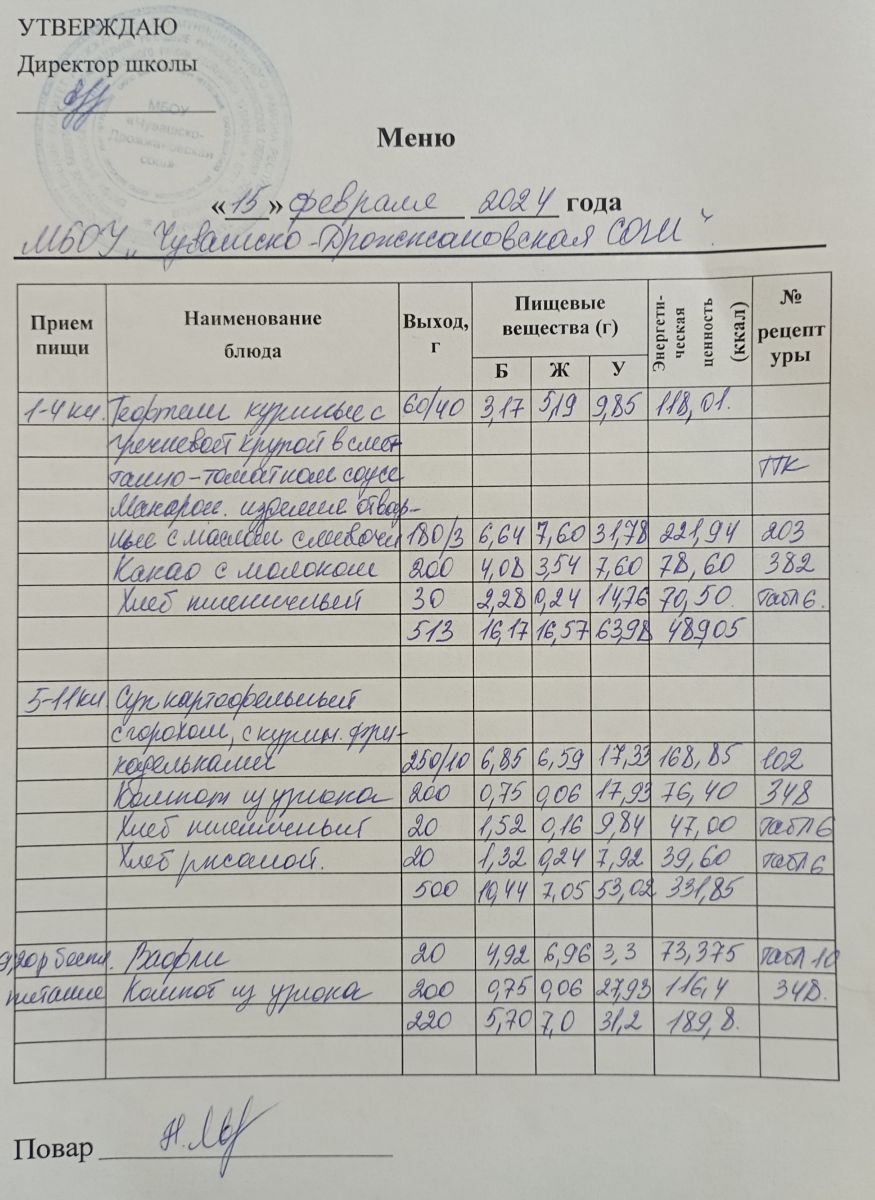 УТВЕРЖДАЮ
Директор школы
МБОУ
«Чувашско-
Дрожжановская
сош»
Меню
«15» февраля 2024 года
МБОУ „Чувашско-Дрожжановская СОШ"
Прием пищи Наименование блюда Выход, г Пищевые вещества (г) Б Ж У Энергети-ческая ценность (ккал) № рецептуры
1-4 кл. Тефтели куриные с 60/40 3,17 5,19 9,85 118,01.
гречневой крупой в сме-
танно-томатном соусе ТТК
Макарон. изделия отвар-
ные с маслом сливочн 180/3 6,64 7,60 31,78 221,94 203
Какао с молоком 200 4,08 3,54 7,60 78,60 382
Хлеб пшеничный 30 2,28 0,24 14,76 70,50. табл 6.
513 16,17 16,57 63,98 489,05
5-11 кл Суп картофельный
с горохом, с курин. фри-
кадельками 250/10 6,85 6,59 17,33 168,85 102
Компот из урюка 200 0,75 0,06 17,93 76,40 348
Хлеб пшеничный 20 1,52 0,16 9,84 47,00 табл 6
Хлеб ржаной. 20 1,32 0,24 7,92 39,60 табл 6
500 10,44 7,05 53,02 331,85
9,20р беспл. Вафли 20 4,92 6,96 3,3 73,375 табл 10
питание Компот из урюка 200 0,75 0,06 27,93 116,4 348.
220 5,70 7,0 31,2 189,8.
Повар